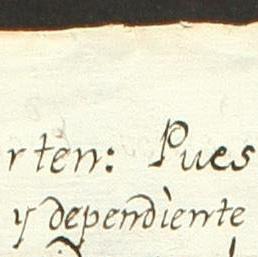 rten: Pues
y dependiente